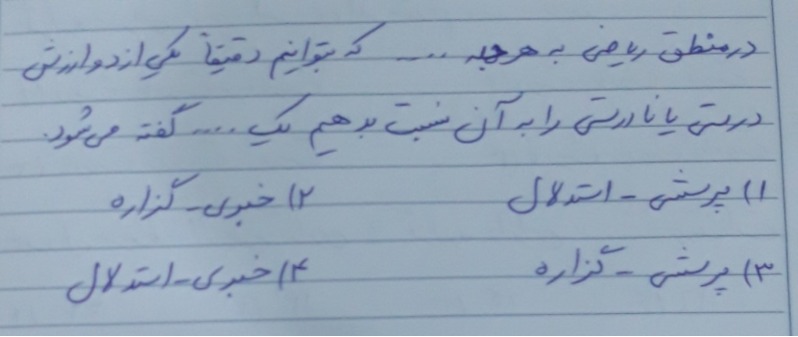 در منطق ریاضی به هر جمله ..... که بتوانیم دقیقاً یکی از دو ارزش
درستی یا نادرستی را به آن نسبت بدهیم یک .... گفته می‌شود.
۱) پرسشی - استدلال ۲) خبری - گزاره
۳) پرسشی - گزاره ۴) خبری - استدلال